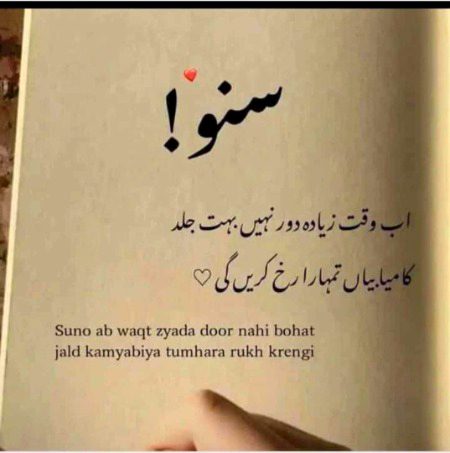 سنو!
اب وقت زیادہ دور نہیں بہت جلد
کامیابیاں تمہارا رخ کریں گی ♡
Suno ab waqt zyada door nahi bohat
jald kamyabiya tumhara rukh krengi